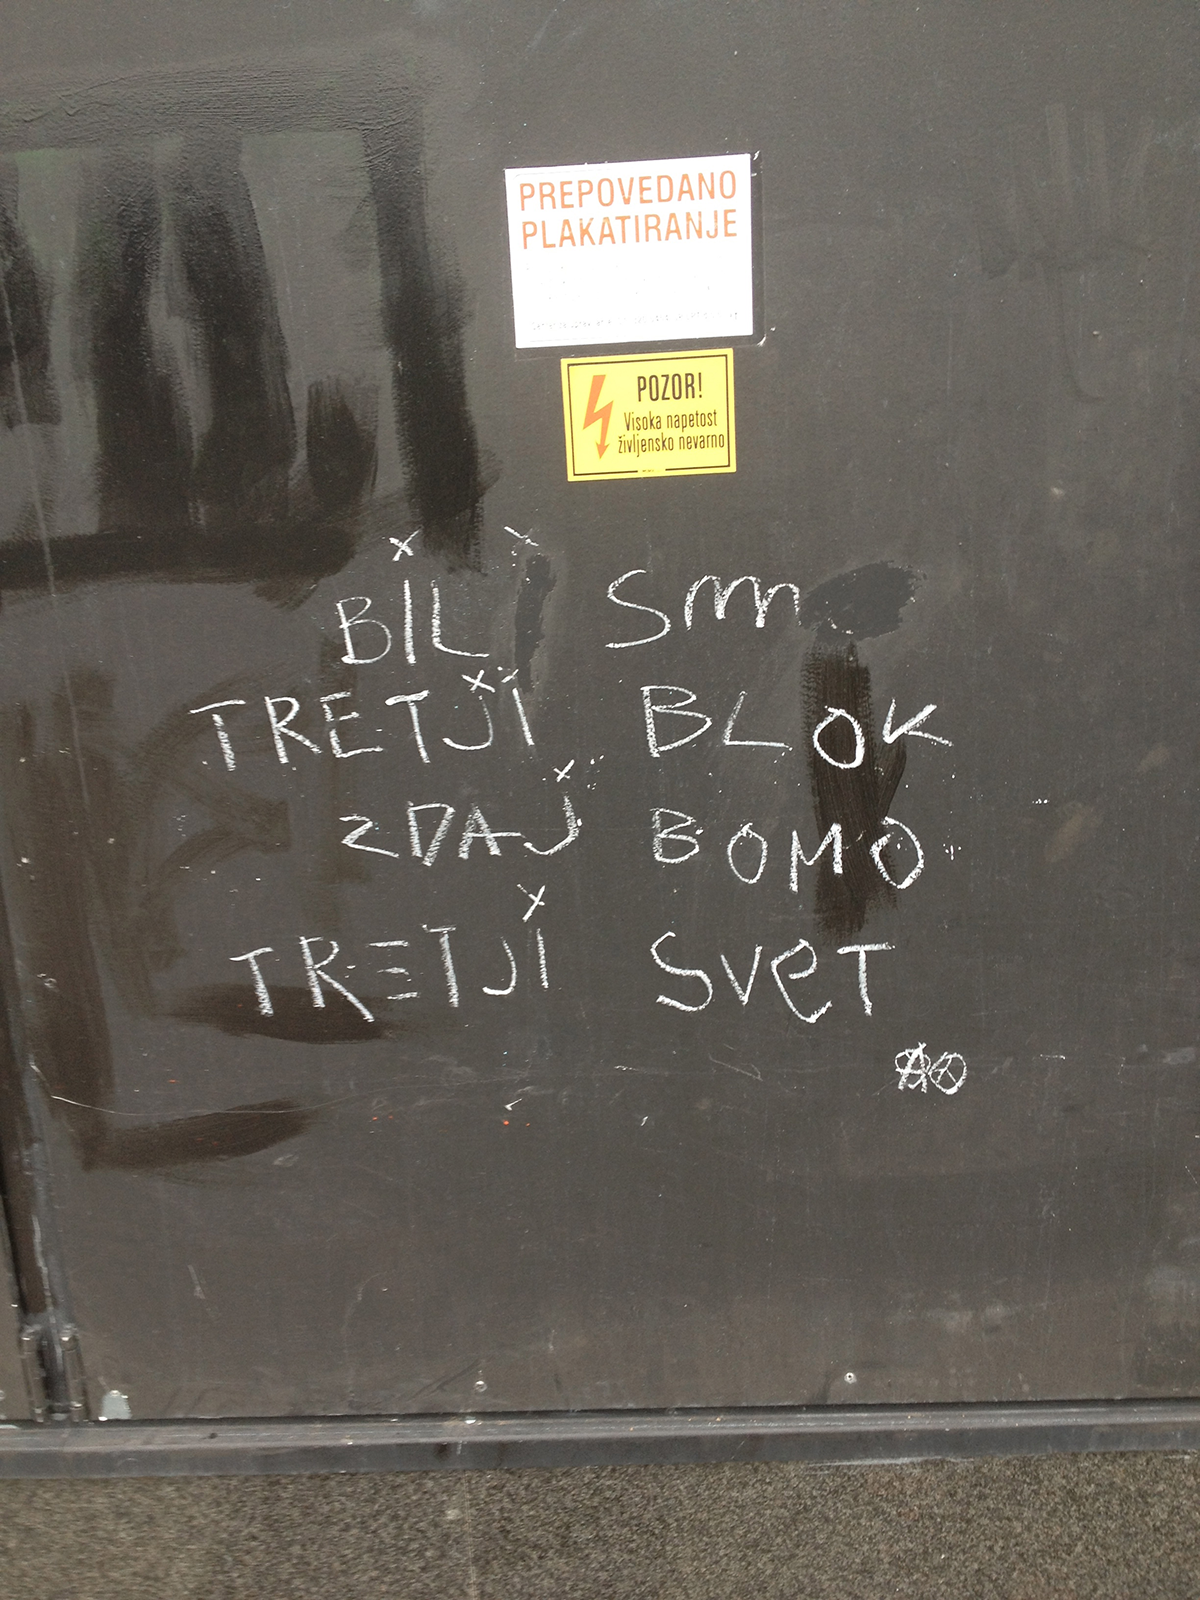 PREPOVEDANO
PLAKATIRANJE
POZOR!
Visoka napetost
življensko nevarno
BILI SMO
TRETJI BLOK
ZDAJ BOMO
TRETJI SVET